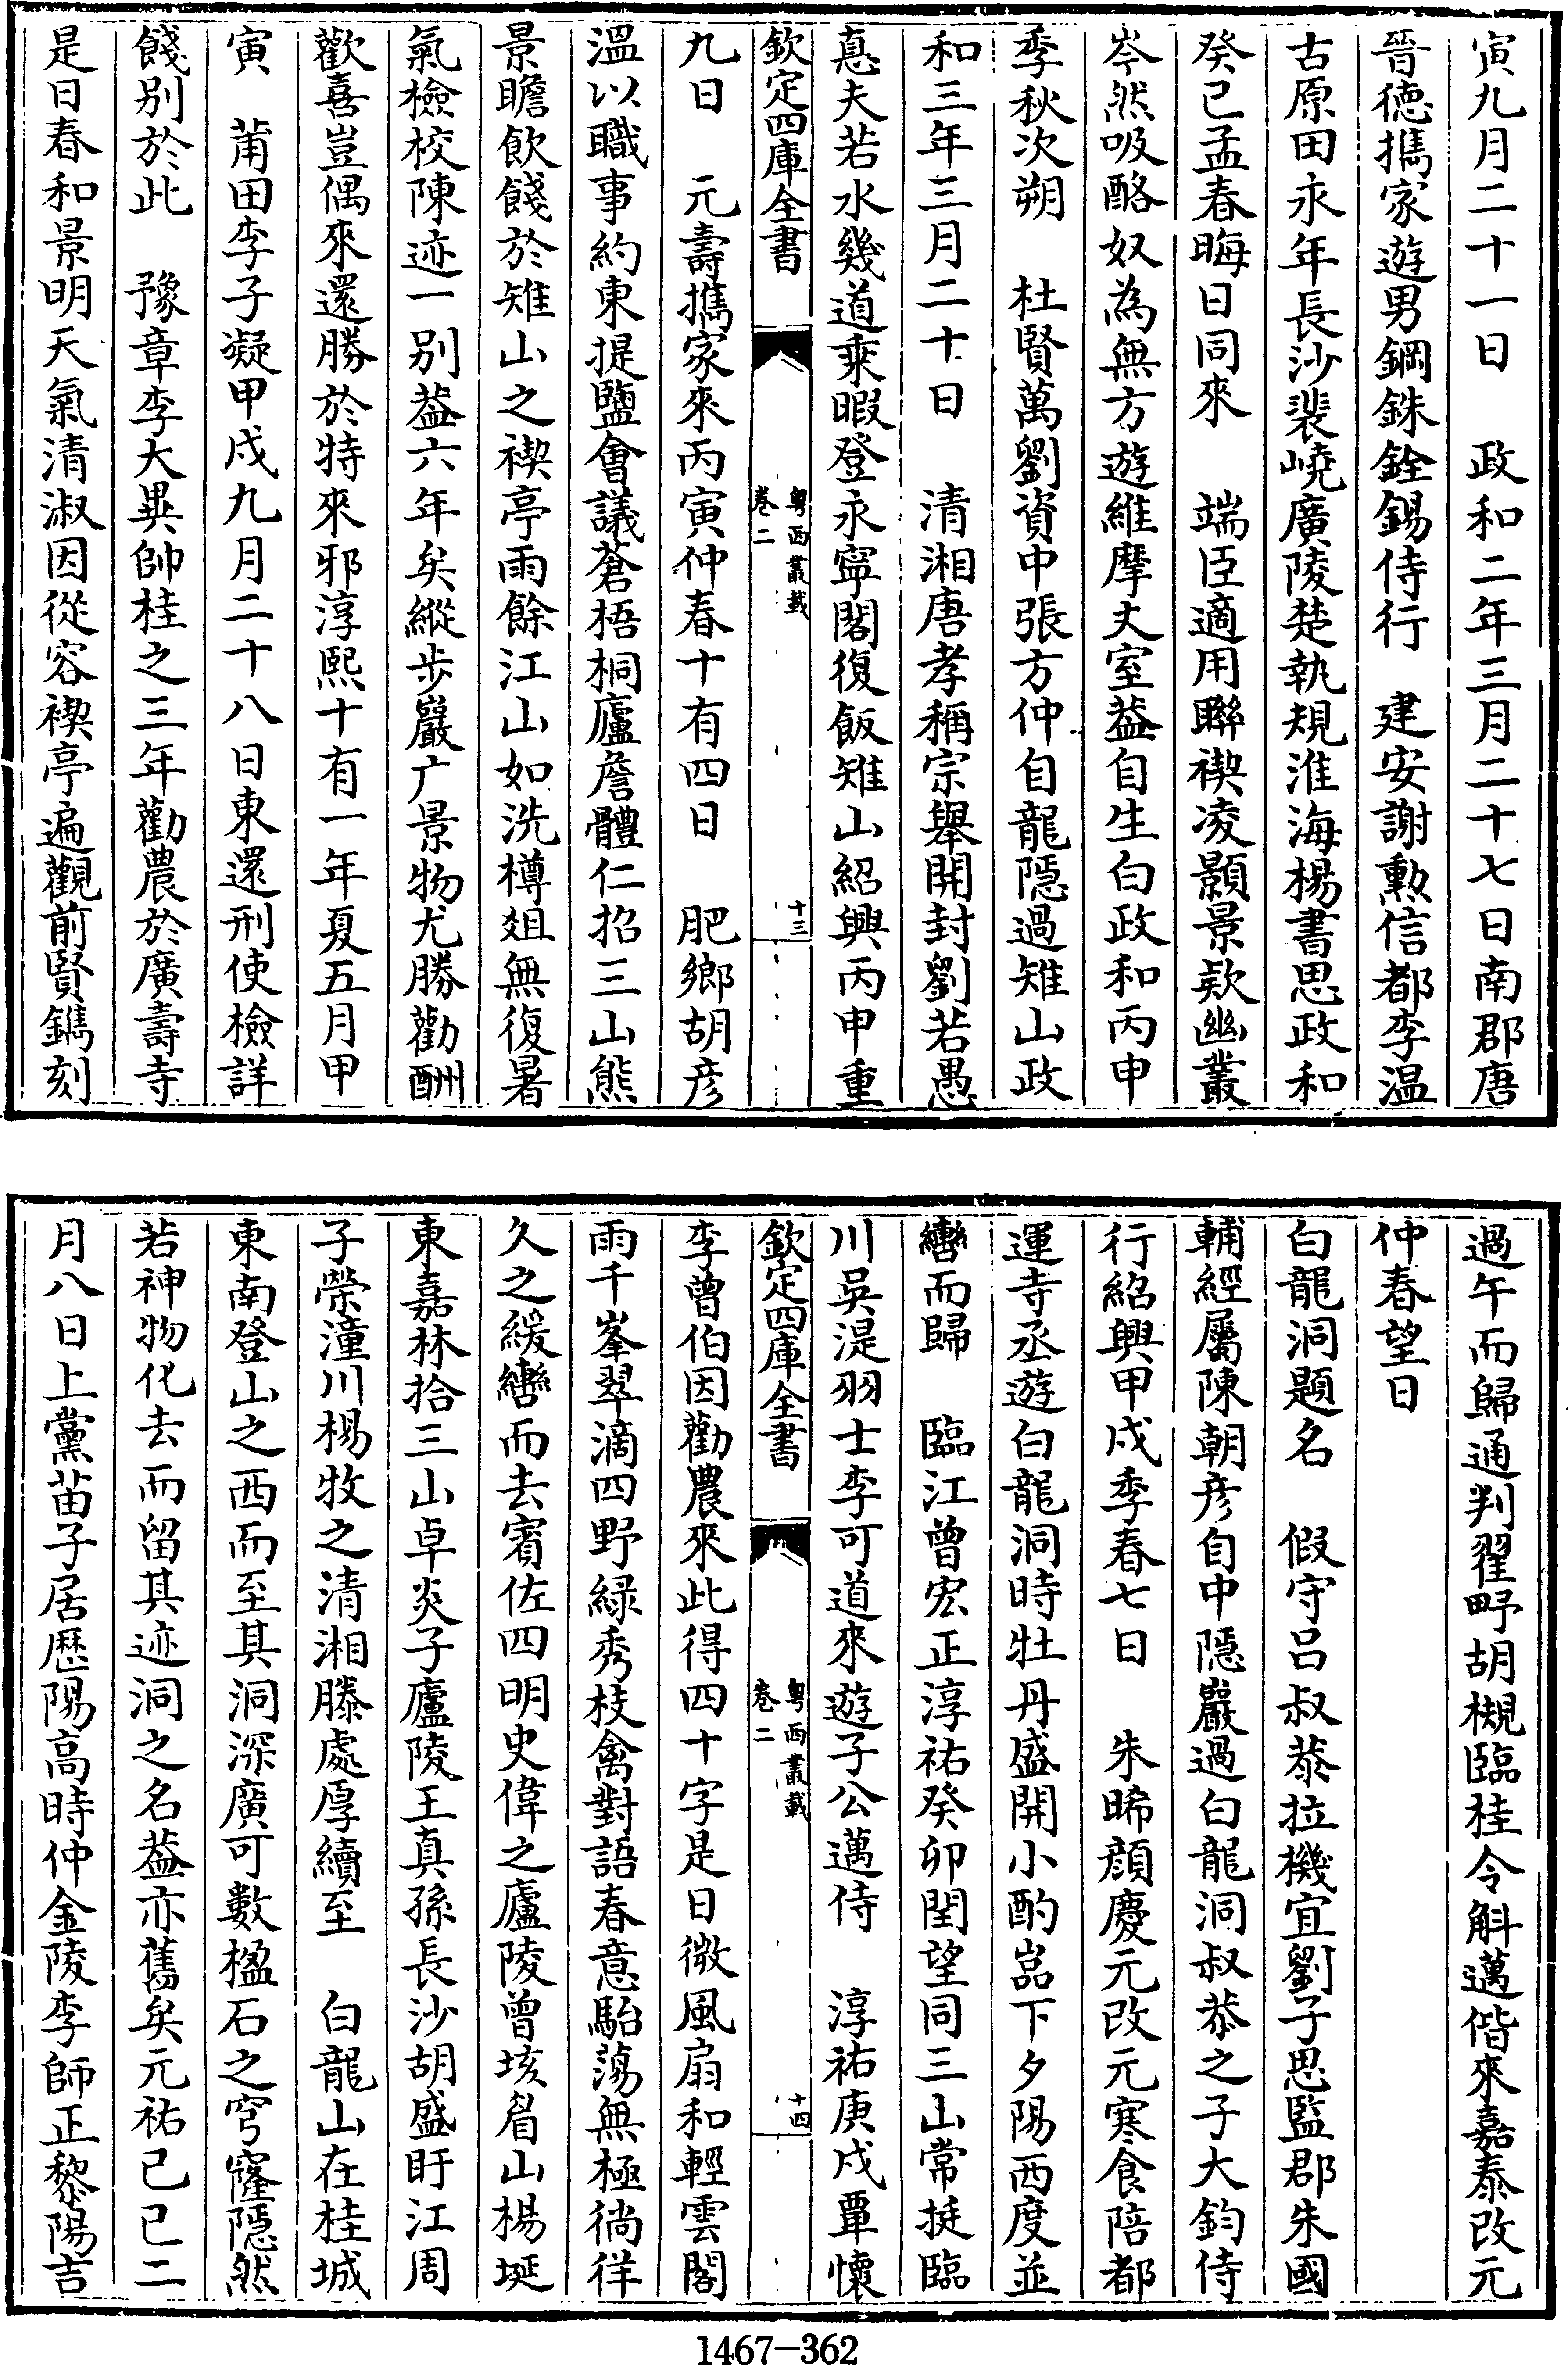 寅九月二十一日　政和二年三月二十七日南郡唐
晉德擕家遊男鋼銖銓錫侍行　建安謝勲信都李温
古原田永年長沙裴嶢廣陵楚執規淮海楊書思政和
癸已孟春晦日同來　端臣適用聨禊凌顥景欵幽叢
岑然吸酪奴為無方遊維摩丈室葢自生白政和丙申
季秋次朔　杜賢萬劉資中張方仲自龍隱過雉山政
和三年三月二十日　清湘唐孝稱宗舉開封劉若愚
惪夫若水幾道乘暇登永寧閣復飯雉山紹興丙申重
欽定四庫全書
粤西叢載
卷二
十三
九日　元壽擕家來丙寅仲春十有四日　肥鄉胡彦
溫以職事約東提鹽會議蒼梧桐廬詹體仁招三山熊
景瞻飲餞於雉山之禊亭雨餘江山如洗樽爼無復暑
氣檢校陳迹一别葢六年矣縱步巖广景物尤勝勸酬
歡喜豈偶來還勝於特來邪淳熙十有一年夏五月甲
寅　莆田李子凝甲戍九月二十八日東還刑使檢詳
餞别於此　豫章李大異帥桂之三年勸農於廣壽寺
是日春和景明天氣清淑因從容禊亭遍觀前賢鐫刻
過午而歸通判翟野胡槻臨桂令斛邁偕來嘉泰改元
仲春望日
白龍洞題名　假守吕叔恭拉機宜劉子思監郡朱國
輔經屬陳朝彦自中隱巖過白龍洞叔恭之子大鈞侍
行紹興甲戍季春七日　朱晞顔慶元改元寒食陪都
運寺丞遊白龍洞時牡丹盛開小酌嵓下夕陽西度並
轡而歸　臨江曾宏正淳祐癸卯閏望同三山常挺臨
川吳湜羽士李可道來遊子公邁侍　淳祐庚戍覃懷
欽定四庫全書
粤西叢載
卷二
十四
李曾伯因勸農來此得四十字是日微風扇和輕雲閣
雨千峯翠滴四野緑秀枝禽對語春意駘蕩無極徜徉
久之緩轡而去賓佐四明史偉之廬陵曾垓眉山楊埏
東嘉林拾三山卓炎子廬陵王真孫長沙胡盛盱江周
子榮潼川楊牧之清湘滕處厚續至　白龍山在桂城
東南登山之西而至其洞深廣可數楹石之穹窿隱然
若神物化去而留其迹洞之名葢亦舊矣元祐已已二
月八日上黨苖子居歴陽高時仲金陵李師正黎陽吉
1467-362